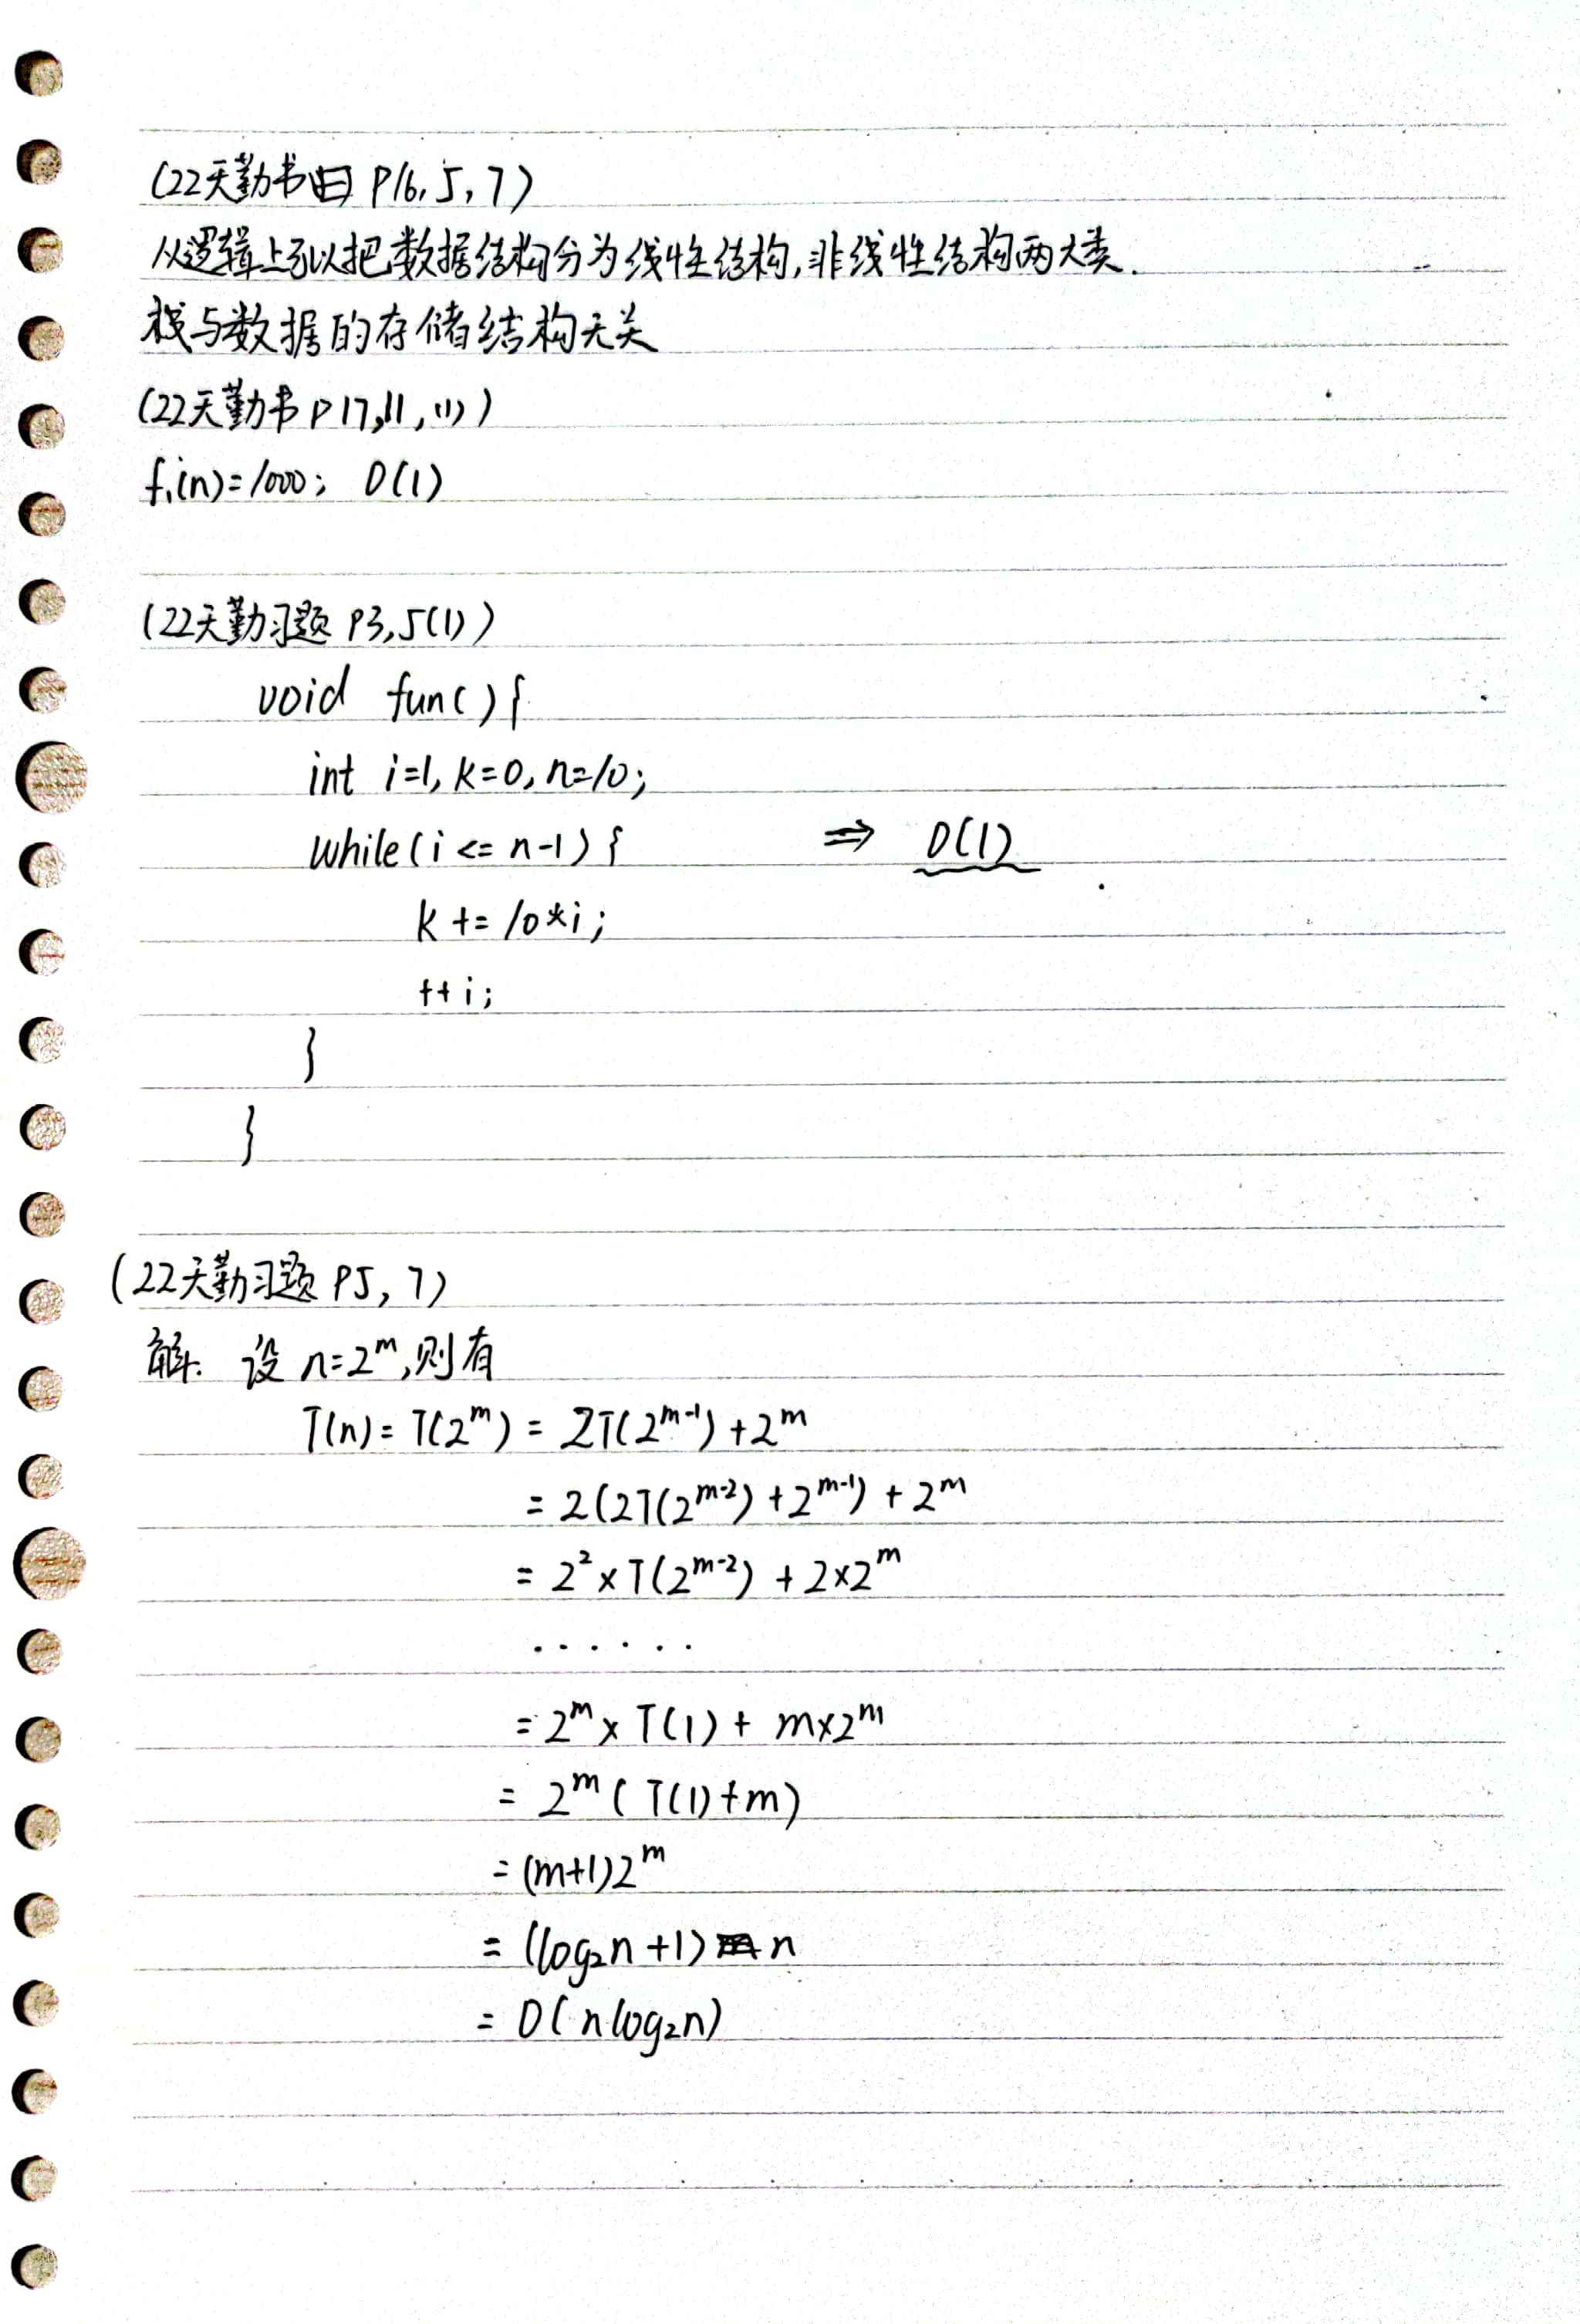 (22天勤书 P16, 5, 7)
从逻辑上可以把数据结构分为线性结构,非线性结构两大类.
栈与数据的存储结构无关
(22天勤书 P17,11,(1))
f₁(n)=1000; O(1)
(22天勤习题 P3,5(1))
void fun(){
int i=1, k=0, n=10;
while(i <= n-1){ ⇒ O(1)
k += 10*i;
++i;
}
}
(22天勤习题 P5, 7)
解. 设 n=2^m,则有
T(n)= T(2^m) = 2T(2^(m-1)) + 2^m
= 2(2T(2^(m-2)) + 2^(m-1)) + 2^m
= 2² × T(2^(m-2)) + 2×2^m
······
= 2^m × T(1) + m×2^m
= 2^m ( T(1)+m)
= (m+1)2^m
= (log₂n +1) n
= O(nlog₂n)